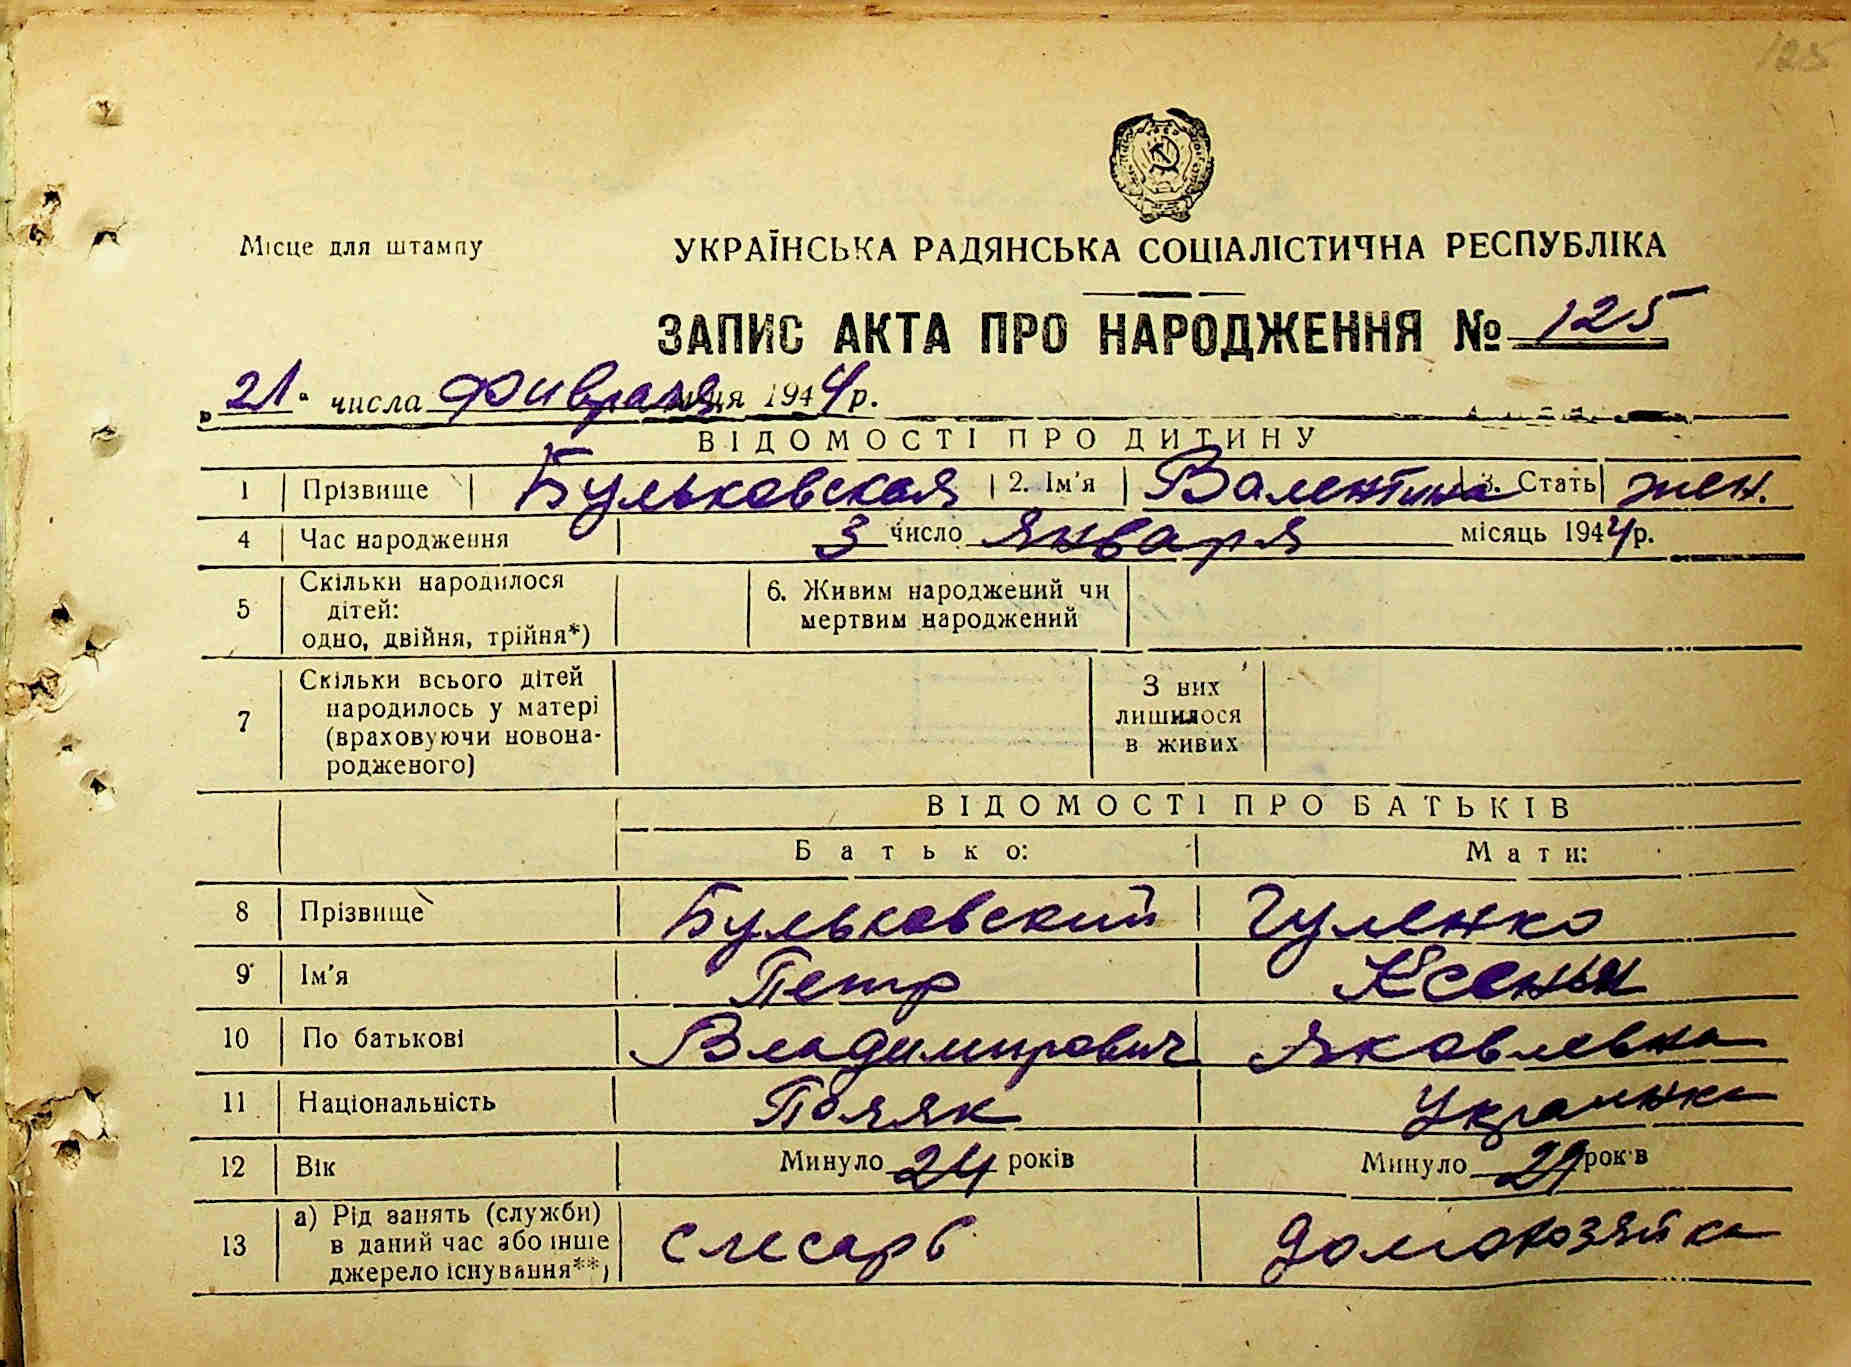 125
Місце для штампу
УКРАЇНСЬКА РАДЯНСЬКА СОЦІАЛІСТИЧНА РЕСПУБЛІКА
ЗАПИС АКТА ПРО НАРОДЖЕННЯ № 125
„21" числа Февраля місяця 1944 р.
ВІДОМОСТІ ПРО ДИТИНУ
1 Прізвище Бульковская 2. Ім'я Валентина 3. Стать жен.
4 Час народження 3 число января місяць 1944 р.
5 Скільки народилося дітей: одно, двійня, трійня*)
6. Живим народжений чи мертвим народжений
7 Скільки всього дітей народилось у матері (враховуючи новонародженого)
З них лишилося в живих
ВІДОМОСТІ ПРО БАТЬКІВ
Батько: Мати:
8 Прізвище Бульковский Гуленко
9 Ім'я Петр Ксенья
10 По батькові Владимирович Яковлевна
11 Національність Поляк Украинка
12 Вік Минуло 24 років Минуло 21 років
13 а) Рід занять (служби) в даний час або інше джерело існування**) слесарь домохозяйка